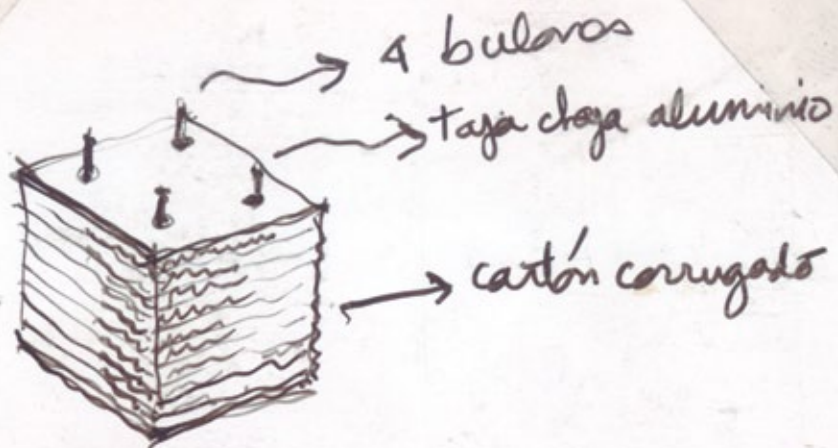 4 bulones
tapa chapa aluminio
cartón corrugado